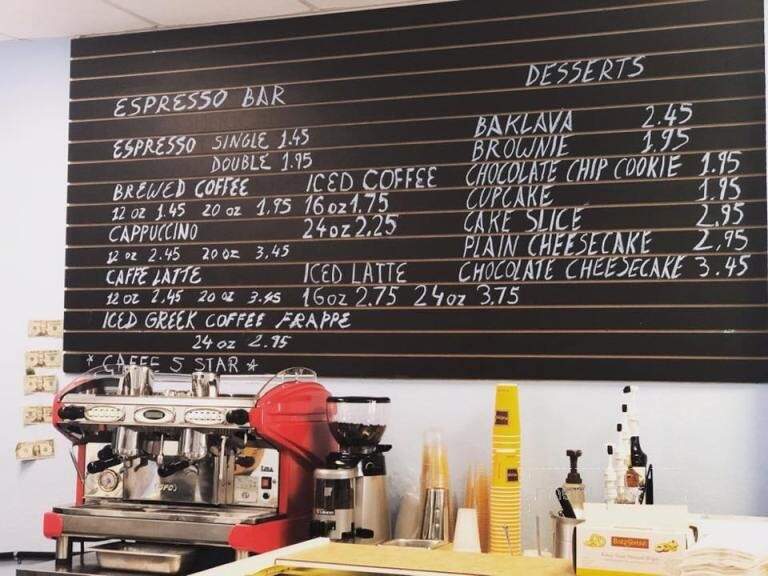 ESPRESSO BAR
ESPRESSO SINGLE 1.45
DOUBLE 1.95
BREWED COFFEE
12 oz 1.45 20 oz 1.95
CAPPUCCINO
12 oz 2.45 20 oz 3.45
CAFFE LATTE
12 oz 2.45 20 oz 3.45
ICED COFFEE
16 oz 1.75
24 oz 2.25
ICED LATTE
16 oz 2.75 24 oz 3.75
ICED GREEK COFFEE FRAPPE
24 oz 2.95
* CAFFE 5 STAR *
DESSERTS
BAKLAVA 2.45
BROWNIE 1.95
CHOCOLATE CHIP COOKIE 1.95
CUPCAKE 1.95
CAKE SLICE 2.95
PLAIN CHEESECAKE 2.95
CHOCOLATE CHEESECAKE 3.45